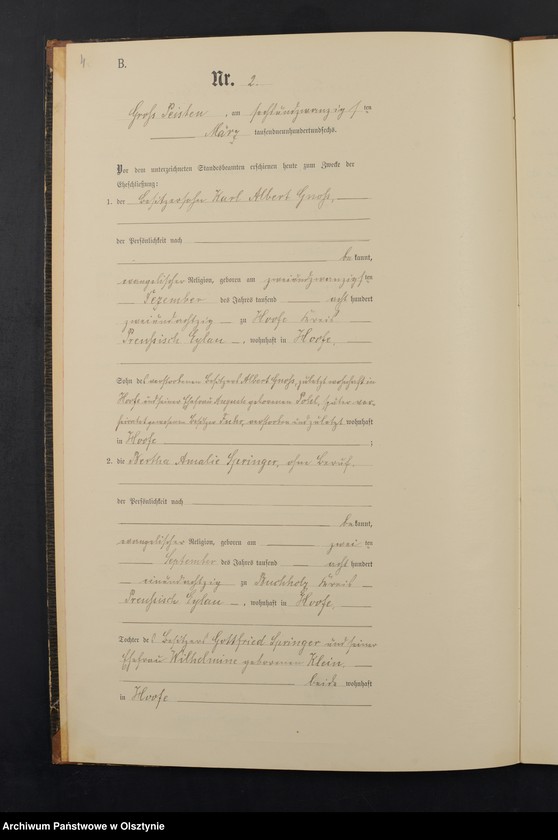 4
B.
Nr. 2.
Gross Peisten, am sechsundzwanzigsten
März tausendneunhundertundsechs.
Vor dem unterzeichneten Standesbeamten erschienen heute zum Zwecke der
Eheschließung:
1. der Besitzersohn Karl Albert Gnoss,
der Persönlichkeit nach
bekannt,
evangelischer Religion, geboren am zweiundzwanzigsten
Dezember des Jahres tausend acht hundert
zweiundachtzig zu Hoofe Kreis
Preußisch Eylau, wohnhaft in Hoofe,
Sohn des verstorbenen Besitzers Albert Gnoss, zuletzt wohnhaft in
Hoofe und seiner Ehefrau geborenen Pohl, später ver-
heiratet gewesenen Besitzer verstorben und zuletzt wohnhaft
in Hoofe ;
2. die Bertha Amalie Springer, ohne Beruf.
der Persönlichkeit nach
bekannt,
evangelischer Religion, geboren am zwei ten
September des Jahres tausend acht hundert
einundachtzig zu Buchholz Kreis
Preußisch Eylau, wohnhaft in Hoofe,
Tochter des Besitzers Gottfried Springer und seiner
Ehefrau Wilhelmine geborenen Klein,
beide wohnhaft
in Hoofe
Archiwum Państwowe w Olsztynie